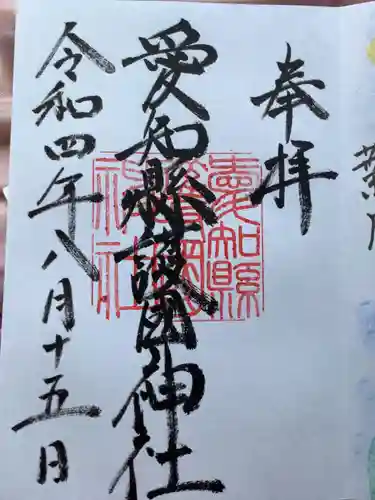 奉拝
愛知縣護国神社
愛知縣
護國
神社
令和四年八月十五日